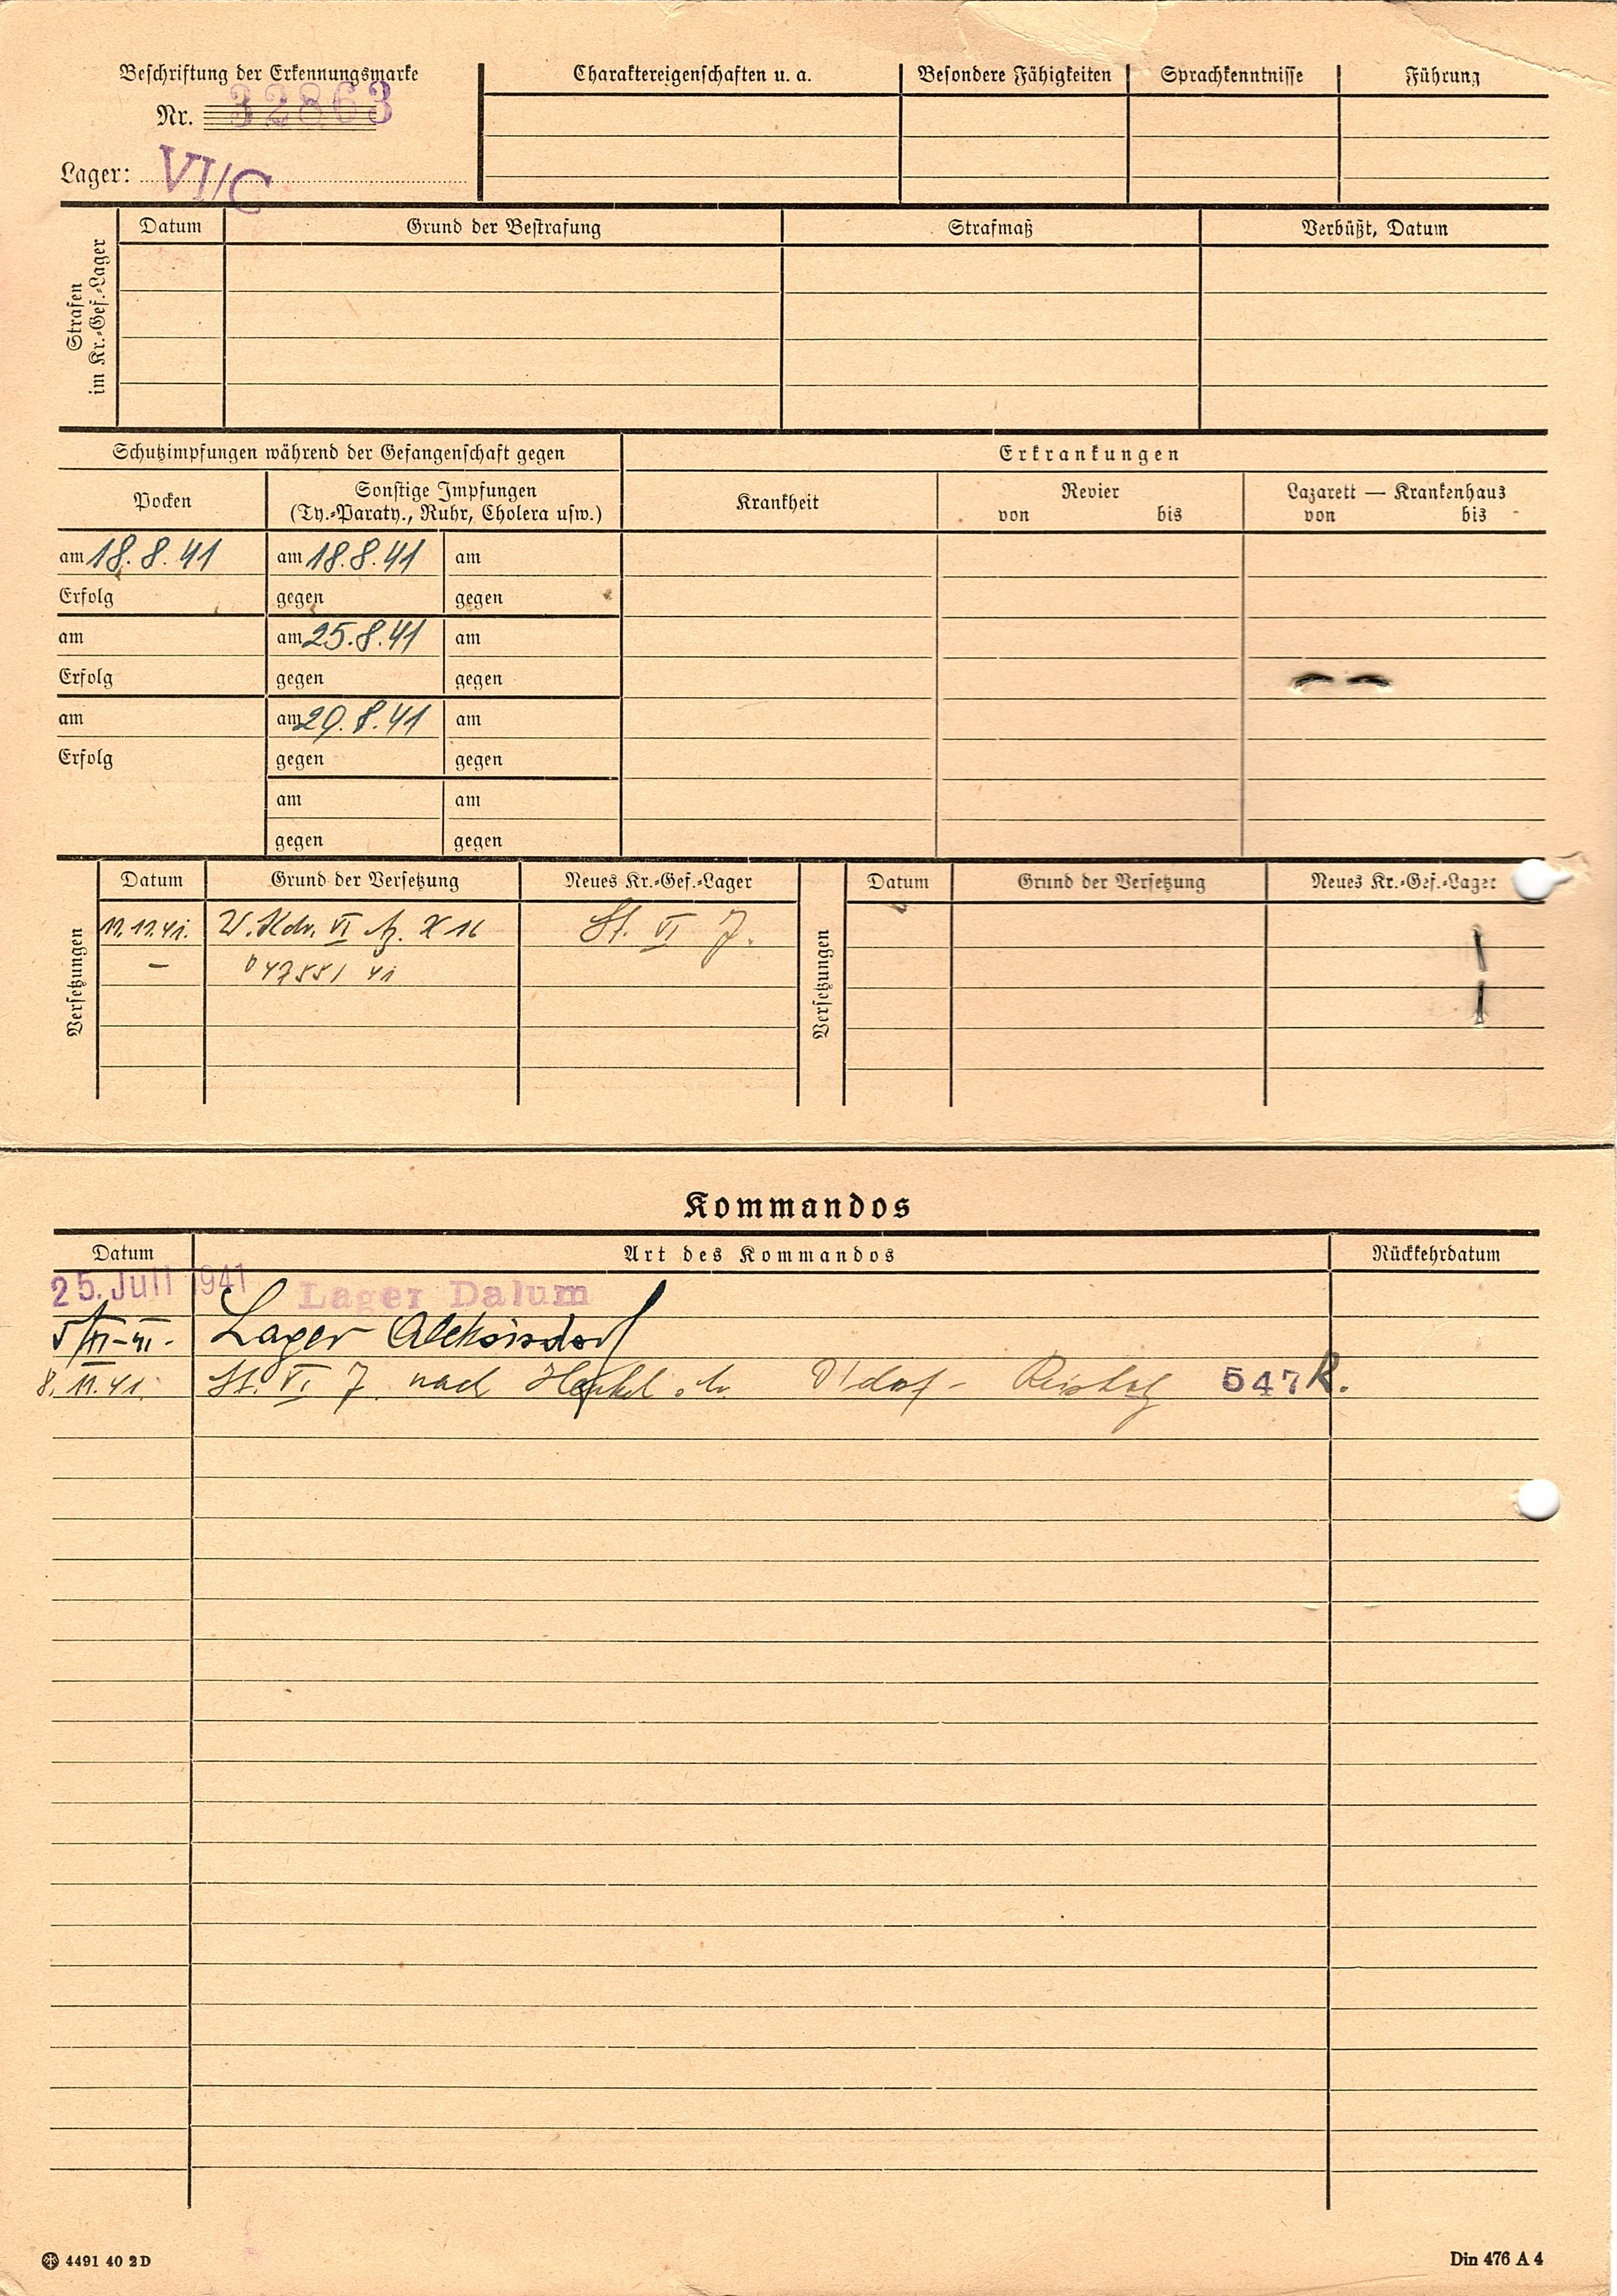 Beschriftung der Erkennungsmarke
Nr. 32863
Lager: VI/C
Charaktereigenschaften u. a.
Besondere Fähigkeiten
Sprachkenntnisse
Führung
Strafen
im Kr.-Gef.-Lager
Datum
Grund der Bestrafung
Strafmaß
Verbüßt, Datum
Schutzimpfungen während der Gefangenschaft gegen
Erkrankungen
Pocken
Sonstige Impfungen
(Ty.-Paraty., Ruhr, Cholera usw.)
Krankheit
Revier
von bis
Lazarett — Krankenhaus
von bis
am 18.8.41 am 18.8.41 am
Erfolg gegen gegen
am am 25.8.41 am
Erfolg gegen gegen
am am 29.8.41 am
Erfolg gegen gegen
am am
gegen gegen
Versetzungen
Datum Grund der Versetzung Neues Kr.-Gef.-Lager
VI Az. X 16 St. VI J.
41
Versetzungen
Datum Grund der Versetzung Neues Kr.-Gef.-Lager
Kommandos
Datum Art des Kommandos Rückkehrdatum
25. Juli 1941 Lager Dalum
Lager Aleksisdorf
8. 11. 41. St. VI J nach Henkel D'dorf - Reisholz 547 R.
4491 40 2D
Din 476 A 4